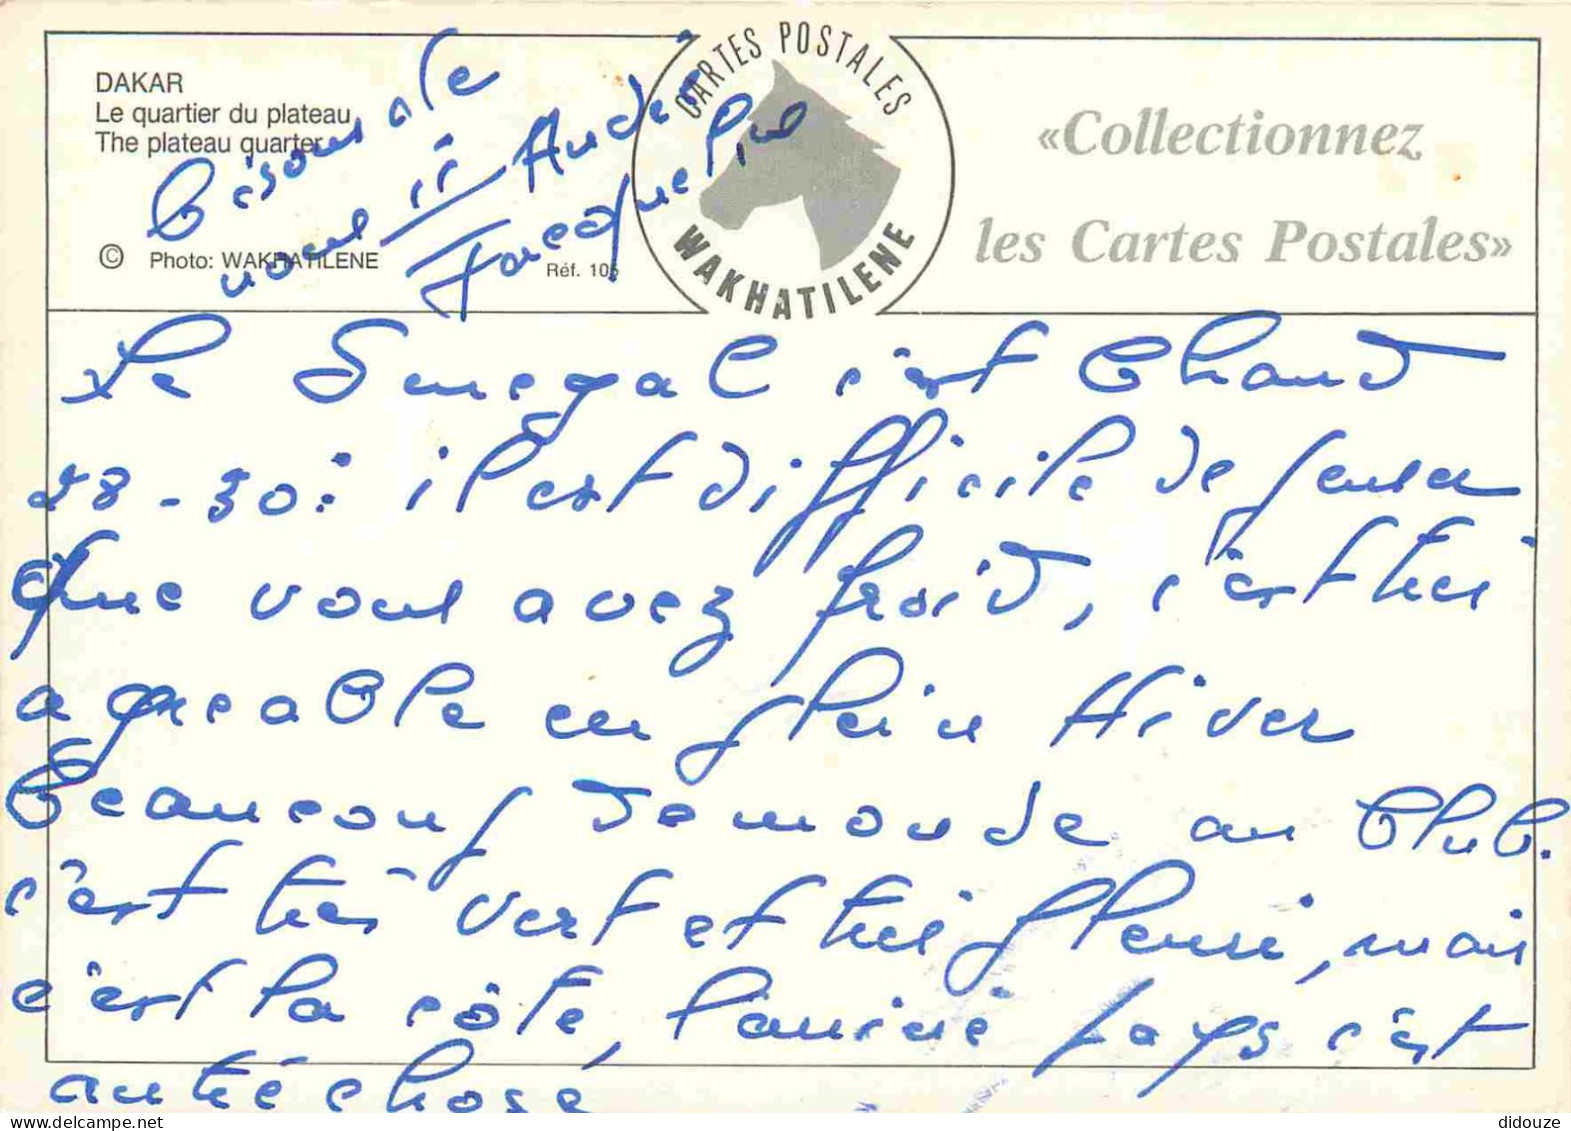 DAKAR
Le quartier du plateau
The plateau quarter
© Photo: WAKHATILENE
Réf. 105
CARTES POSTALES
WAKHATILENE
«Collectionnez
les Cartes Postales»
Bisous de
nous
Jacqueline
Le Senegal c'est Chaud
28-30: il est difficile de penser
que vous avez froid, c'est très
agreable en plein Hiver
Beaucoup de monde au Club.
c'est très vert et très fleuri, mais
c'est la côte, l'arrière pays c'est
autre chose
didouze